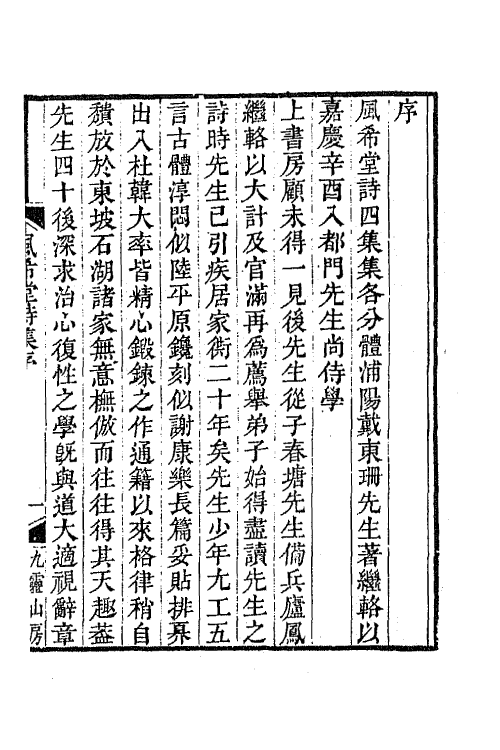 序
風希堂詩四集集各分體浦陽戴東珊先生著繼輅以
嘉慶辛酉入都門先生尚侍學
上書房顧未得一見後先生從子春塘先生備兵廬鳳
繼輅以大計及官滿再爲薦舉弟子始得盡讀先生之
詩時先生已引疾居家衖二十年矣先生少年尤工五
言古體淳悶似陸平原鑱刻似謝康樂長篇妥貼排奡
出入杜韓大率皆精心鍛鍊之作通籍以來格律稍自
穨放於東坡石湖諸家無意橅倣而往往得其天趣葢
先生四十後深求治心復性之學旣與道大適視辭章
風希堂詩集序
一
九靈山房